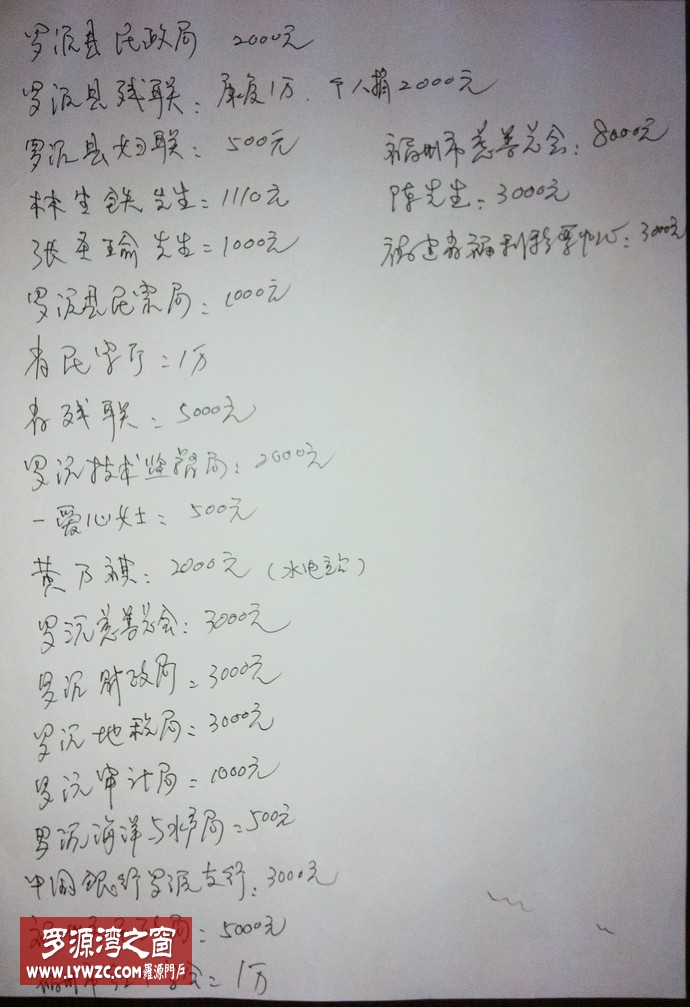 罗源县民政局 2000元
罗源县残联：康复1万、个人捐2000元
罗源县妇联：500元
林生铁先生：1110元
张孟瑜先生：1000元
罗源县民宗局：1000元
省民宗厅：1万
省残联：5000元
罗源技术监督局：2000元
一爱心女士：500元
黄乃祺：2000元（水电站）
罗源慈善总会：3000元
罗源财政局：3000元
罗源地税局：3000元
罗源审计局：1000元
罗源海洋与水产局：500元
中国银行罗源支行：3000元
局：5000元
福州市 会：1万
福州市慈善总会：8000元
陈先生：3000元
福建省福利彩票中心：3000元
罗源湾之窗
WWW.LYWZC.COM 羅源門戶